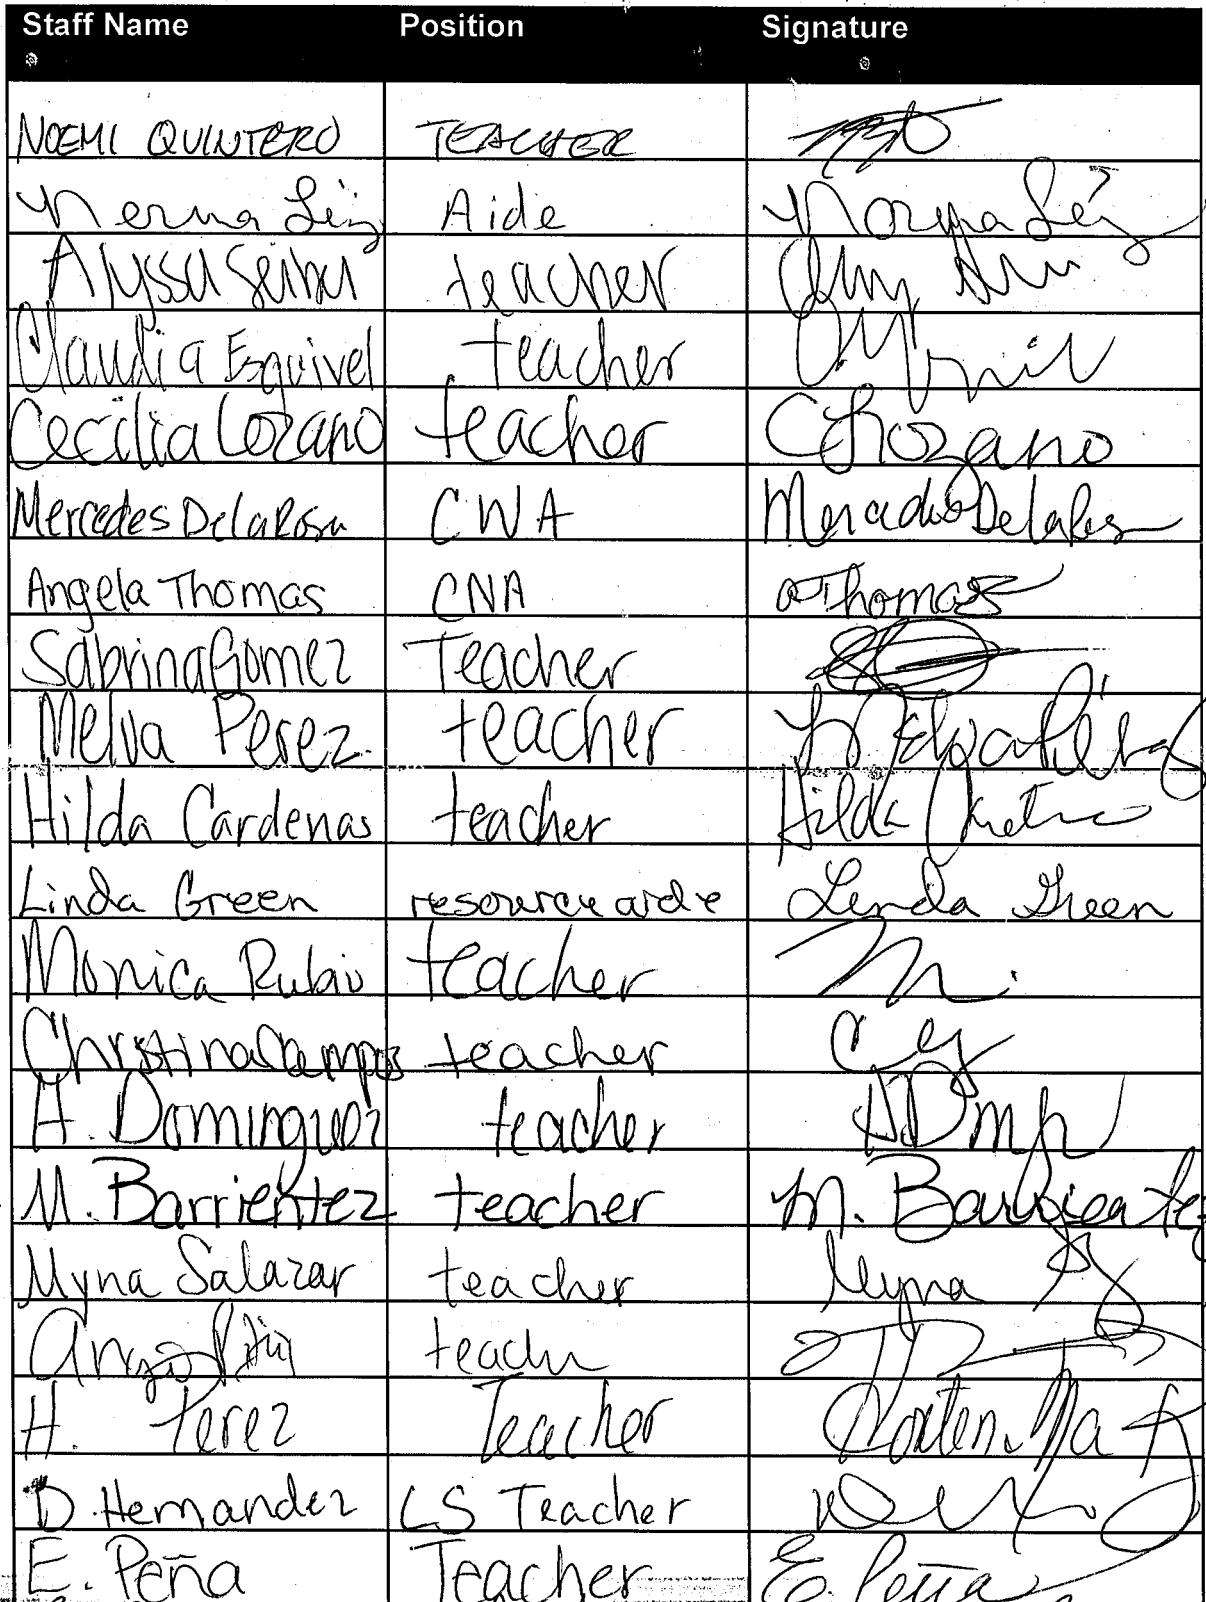 Staff Name Position Signature
NOEMI QUINTERO TEACHER
Norma Aide Norma
Alyssa teacher
Claudia Esquivel teacher
Cecilia Lozano teacher CLozano
Mercedes DelaRosa CWA Mercedes DelaRosa
Angela Thomas CNA AThomas
Sabrina Gomez Teacher
Melva Perez teacher Melva Pérez
Hilda Cardenas teacher Hilda
Linda Green resource aide Linda Green
Monica Rubio teacher
Christina Campos teacher
A. Dominguez teacher
M. Barrientez teacher M. Barrientez
Myna Salazar teacher Myna
teacher
H. Perez Teacher
D. Hernandez LS Teacher
E. Peña Teacher E. Peña